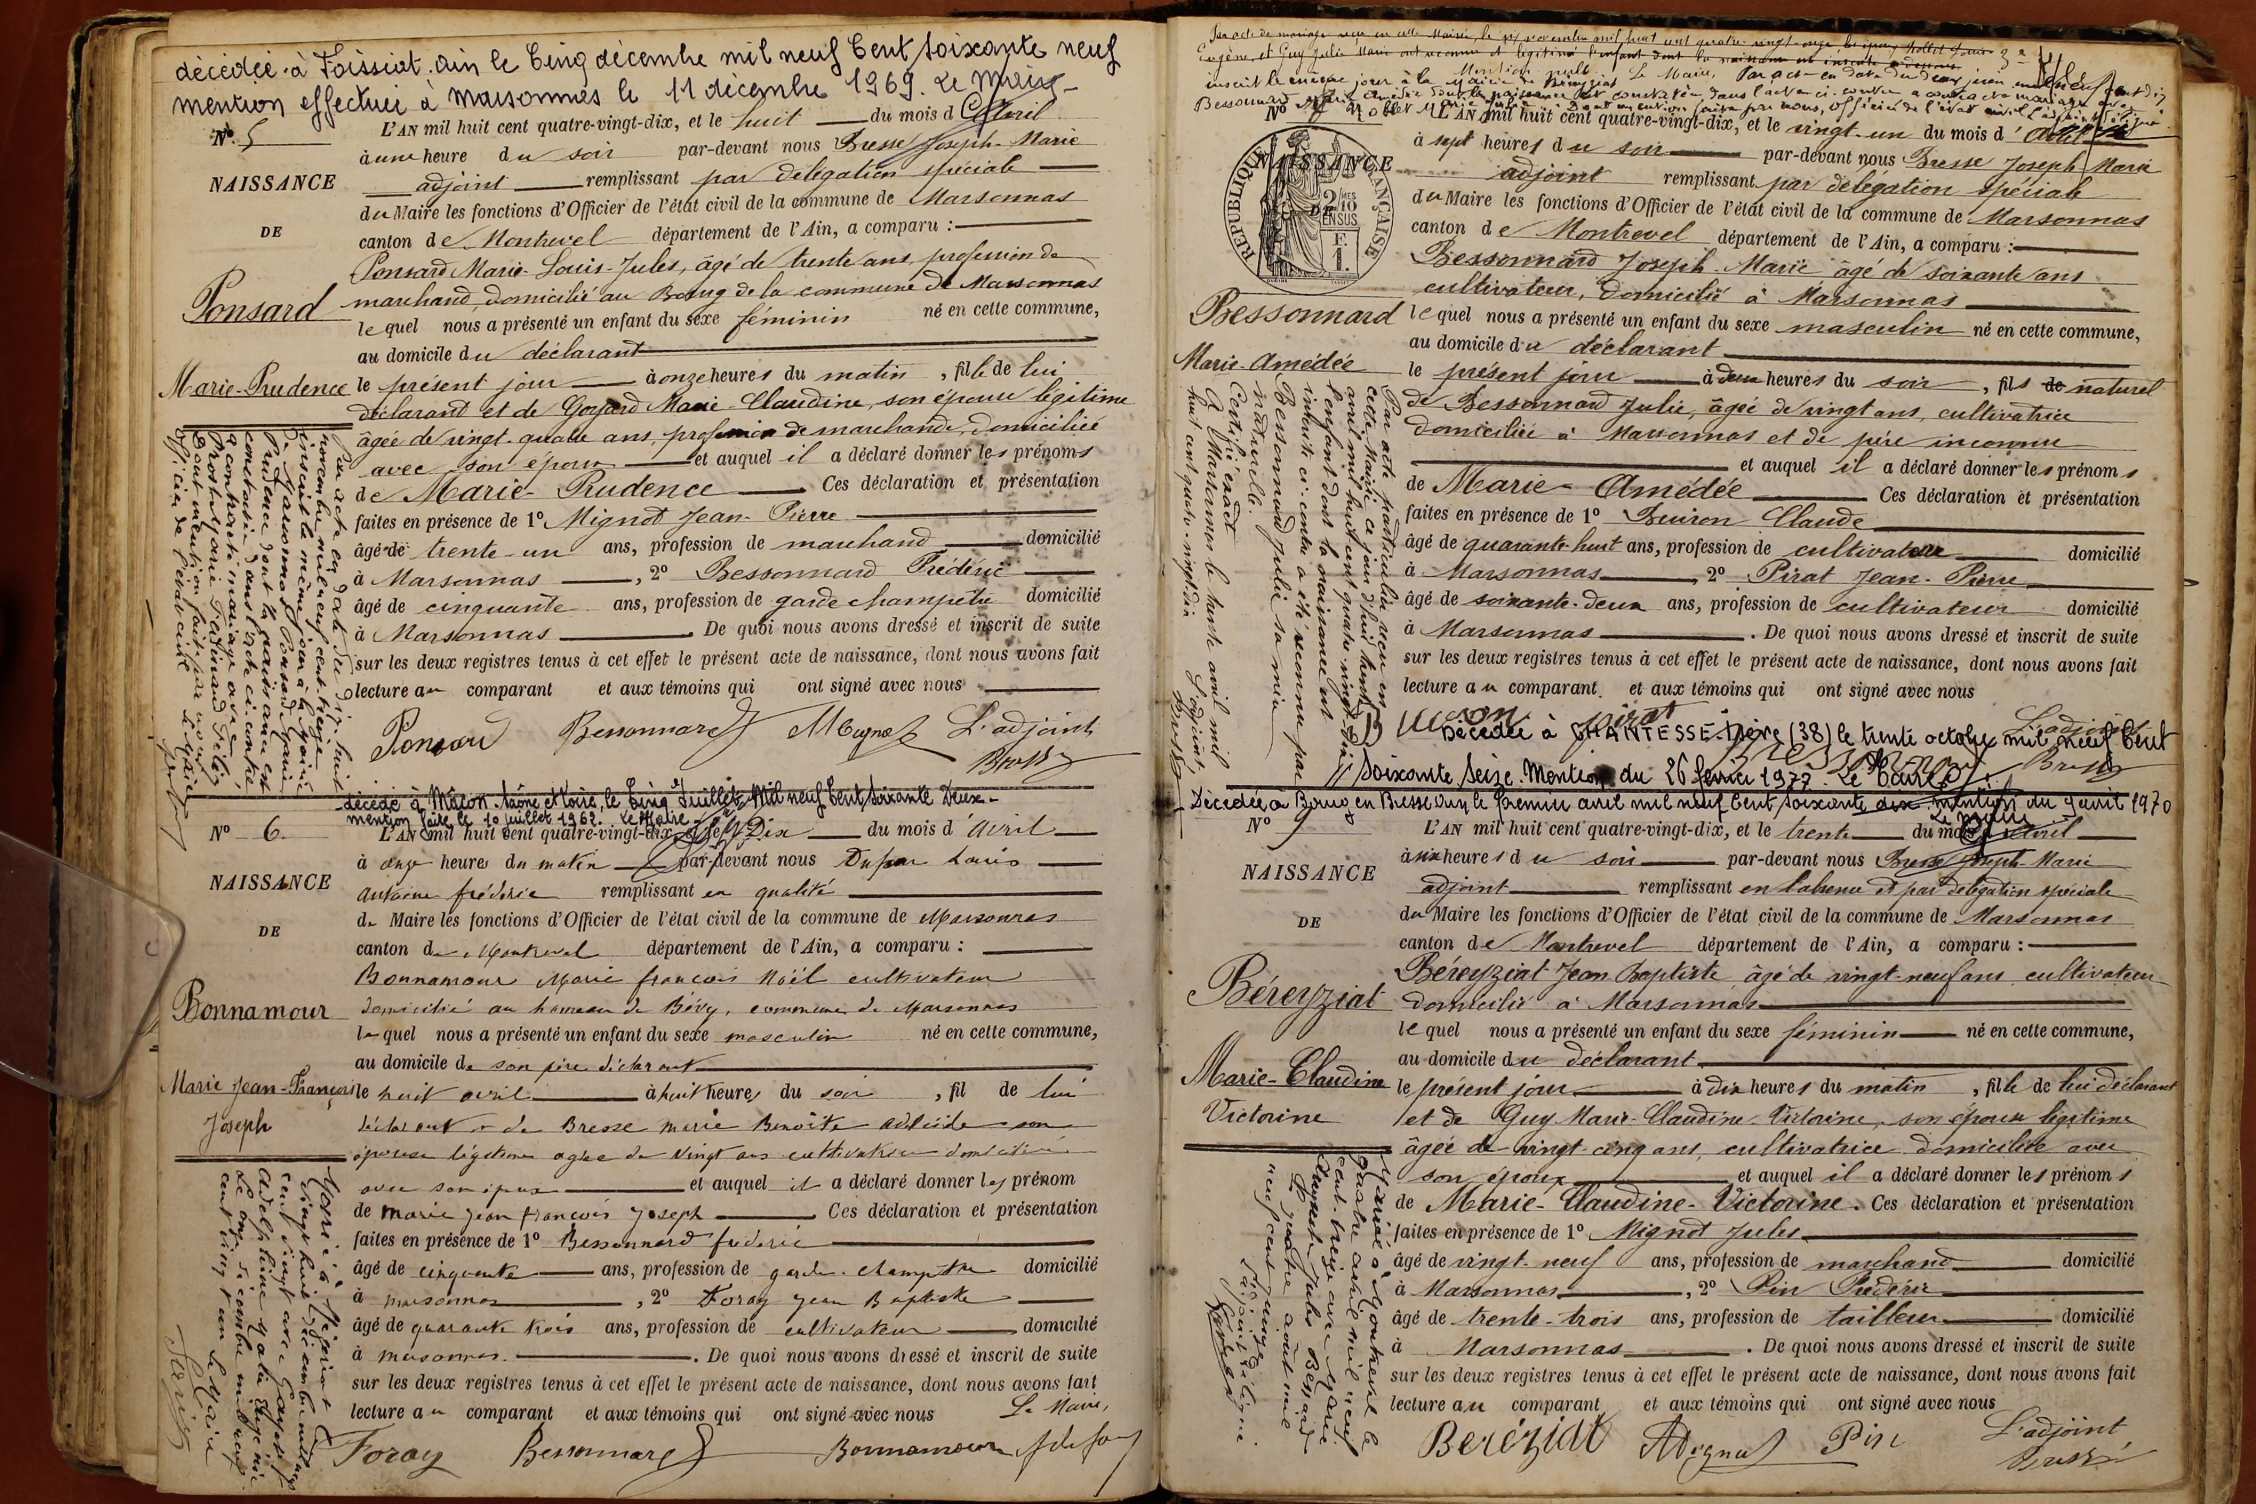 décédée à Foissiat Ain le Cinq décembre mil neuf Cent Soixante neuf
mention effectuée à Marsonnas le 11 décembre 1969. Le Maire
N° 5
NAISSANCE
DE
Ponsard
Marie-Prudence
L'AN mil huit cent quatre-vingt-dix, et le huit du mois d'Avril
à une heure du soir par-devant nous Bresse Joseph-Marie
adjoint remplissant par délégation spéciale
du Maire les fonctions d'Officier de l'état civil de la commune de Marsonnas
canton de Montrevel département de l'Ain, a comparu :
Ponsard Marie-Louis-Jules, âgé de trente ans, profession de
marchand domicilié au Bourg de la commune de Marsonnas
lequel nous a présenté un enfant du sexe féminin né en cette commune,
au domicile du déclarant
le présent jour à onze heures du matin, fille de lui
déclarant et de Goyard Marie-Claudine, son épouse légitime
âgée de vingt-quatre ans, profession de marchande, domiciliée
avec son époux et auquel il a déclaré donner les prénoms
de Marie-Prudence Ces déclaration et présentation
faites en présence de 1° Mignot Jean-Pierre
âgé de trente-un ans, profession de marchand domicilié
à Marsonnas, 2° Bessonnard Frédéric
âgé de cinquante ans, profession de garde champêtre domicilié
à Marsonnas. De quoi nous avons dressé et inscrit de suite
sur les deux registres tenus à cet effet le présent acte de naissance, dont nous avons fait
lecture au comparant et aux témoins qui ont signé avec nous
Ponsard Bessonnard Mignot L'adjoint
Bresse
Par acte en date du dix huit
novembre mil neuf cent treize
inscrit le même jour à la Mairie
de Marsonnas Ponsard Marie
Prudence dont la naissance est
constatée dans l'acte ci-contre
a contracté mariage avec
Prost Marie Ferdinand Félix
Dont mention faite par nous
Officier de l'état civil
Le Maire
décédé à Mâcon Saône et Loire, le Cinq Juillet Mil neuf Cent Soixante Deux
mention faite le 10 juillet 1962. Le Maire
N° 6
NAISSANCE
DE
Bonnamour
Marie Jean-François
Joseph
L'AN mil huit cent quatre-vingt-dix, et le Dix du mois d'avril
à onze heures du matin par-devant nous Dufour Louis
antoine frédéric remplissant en qualité
de Maire les fonctions d'Officier de l'état civil de la commune de Marsonnas
canton de Montrevel département de l'Ain, a comparu :
Bonnamour Marie françois Noël cultivateur
domicilié au hameau de Bévy, commune de Marsonnas
lequel nous a présenté un enfant du sexe masculin né en cette commune,
au domicile de son père déclarant
le huit avril à huit heures du soir, fil de lui
déclarant et de Bresse marie Benoîte adélaïde son
épouse légitime agée de vingt ans cultivatrice domiciliée
avec son époux et auquel il a déclaré donner les prénom
de marie jean françois joseph Ces déclaration et présentation
faites en présence de 1° Bessonnard frédéric
âgé de cinquante ans, profession de garde-champêtre domicilié
à marsonnas, 2° Foray jean Baptiste
âgé de quarante trois ans, profession de cultivateur domicilié
à marsonnas. De quoi nous avons dressé et inscrit de suite
sur les deux registres tenus à cet effet le présent acte de naissance, dont nous avons fait
lecture au comparant et aux témoins qui ont signé avec nous Le Maire,
Foray Bessonnard Bonnamour
Marié à
vingt huit décembre mil neuf
cent vingt avec
Adelphine Maria Eugénie
Le onze décembre mil neuf
cent vingt un Le Maire
Par acte de mariage reçu en cette Mairie, le
Eugène, et Guy Julie Marie ont reconnu et légitimé l'enfant dont la naissance est inscrite ci-dessous
Mention nulle Le Maire,
inscrit le même jour à la Mairie de
Bessonnard Marie Amédée dont la naissance est constatée dans l'acte ci-contre a contracté mariage avec
Dont mention faite par nous, Officier de l'état civil
N°
NAISSANCE
DE
RÉPUBLIQUE FRANÇAISE
2/10 EN SUS
F. 1.
Bessonnard
Marie-Amédée
L'AN mil huit cent quatre-vingt-dix, et le vingt-un du mois d'Avril
à sept heures du soir par-devant nous Bresse Joseph Marie
adjoint remplissant par délégation spéciale
du Maire les fonctions d'Officier de l'état civil de la commune de Marsonnas
canton de Montrevel département de l'Ain, a comparu :
Bessonnard Joseph-Marie âgé de soixante ans
cultivateur, domicilié à Marsonnas
lequel nous a présenté un enfant du sexe masculin né en cette commune,
au domicile du déclarant
le présent jour à deux heures du soir, fils de naturel
de Bessonnard Julie, âgée de vingt ans, cultivatrice
domiciliée à Marsonnas et de père inconnu
et auquel il a déclaré donner les prénoms
de Marie-Amédée Ces déclaration et présentation
faites en présence de 1° Buiron Claude
âgé de quarante-huit ans, profession de cultivateur domicilié
à Marsonnas, 2° Pirat Jean-Pierre
âgé de soixante-deux ans, profession de cultivateur domicilié
à Marsonnas. De quoi nous avons dressé et inscrit de suite
sur les deux registres tenus à cet effet le présent acte de naissance, dont nous avons fait
lecture au comparant et aux témoins qui ont signé avec nous
Buiron Pirat L'adjoint
Bresse
Par acte particulier reçu en
cette Mairie ce jour d'hui trente
avril mil huit cent quatre-vingt-dix
l'enfant dont la naissance est
inscrite ci-contre a été reconnu par
Bessonnard Julie sa mère
naturelle.
Certifié exact
A Marsonnas le trente avril mil
huit cent quatre-vingt-dix
L'adjoint,
Bresse
Décédée à CHANTESSE Isère (38) le trente octobre mil neuf Cent
Soixante Seize. Mention du 26 février 1977. Le Maire
Décédée à Bourg en Bresse Ain le Premier avril mil neuf Cent Soixante dix mention du 9 avril 1970
Le Maire
N° 9
NAISSANCE
DE
Béreyziat
Marie-Claudine
Victorine
L'AN mil huit cent quatre-vingt-dix, et le trente du mois d'Avril
à six heures du soir par-devant nous Bresse Joseph-Marie
adjoint remplissant en l'absence et par délégation spéciale
du Maire les fonctions d'Officier de l'état civil de la commune de Marsonnas
canton de Montrevel département de l'Ain, a comparu :
Béreyziat Jean Baptiste âgé de vingt-neuf ans, cultivateur
domicilié à Marsonnas
lequel nous a présenté un enfant du sexe féminin né en cette commune,
au domicile du déclarant
le présent jour à dix heures du matin, fille de lui déclarant
et de Guy Marie-Claudine-Victorine, son épouse légitime
âgée de vingt-cinq ans, cultivatrice domiciliée avec
son époux et auquel il a déclaré donner les prénoms
de Marie-Claudine-Victorine. Ces déclaration et présentation
faites en présence de 1° Mignot Jules
âgé de vingt-neuf ans, profession de marchand domicilié
à Marsonnas, 2° Pin Frédéric
âgé de trente-trois ans, profession de tailleur domicilié
à Marsonnas. De quoi nous avons dressé et inscrit de suite
sur les deux registres tenus à cet effet le présent acte de naissance, dont nous avons fait
lecture au comparant et aux témoins qui ont signé avec nous
Beréziat Mignot Pin L'adjoint
Bresse
Mariée à Montrevel le
quatre avril mil neuf
cent treize avec Marie
Auguste Jules Bessard
Le quatre août mil
neuf cent quinze
L'adjoint délégué